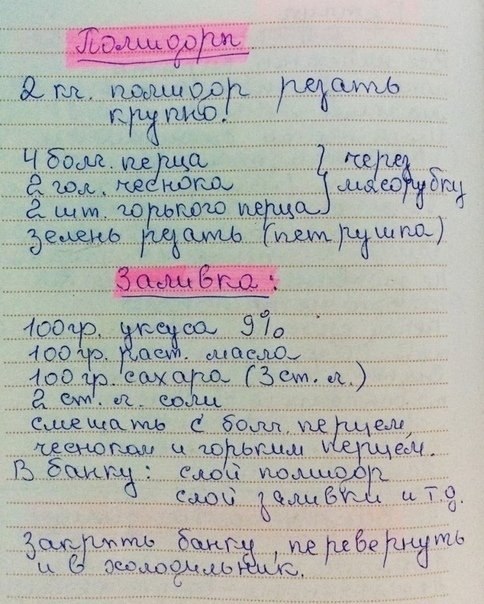 Помидоры
2 кг. помидор резать
крупно.
4 болг. перца } через
2 гол. чеснока } мясорубку
2 шт. горького перца
зелень резать (петрушка)
Заливка:
100 гр. уксуса 9%
100 гр. раст. масла
100 гр. сахара (3 ст. л.)
2 ст. л. соли
смешать с болг. перцем,
чесноком и горьким перцем.
В банку: слой помидор
слой заливки и т.д.
Закрыть банку, перевернуть
и в холодильник.